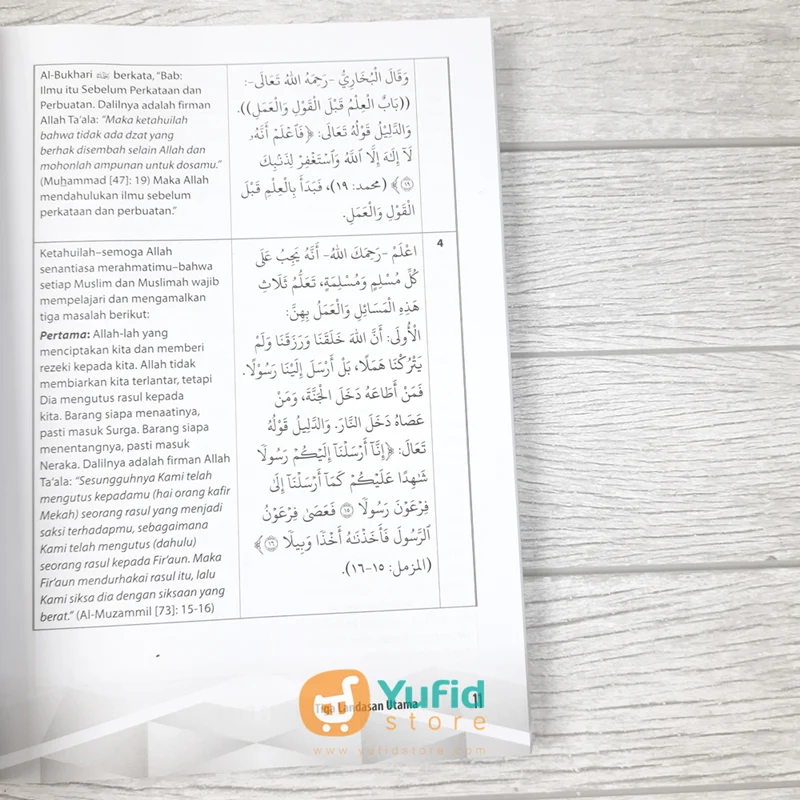 Al-Bukhari berkata, "Bab:
Ilmu itu Sebelum Perkataan dan
Perbuatan. Dalilnya adalah firman
Allah Ta'ala: "Maka ketahuilah
bahwa tidak ada dzat yang
berhak disembah selain Allah dan
mohonlah ampunan untuk dosamu."
(Muhammad [47]: 19) Maka Allah
mendahulukan ilmu sebelum
perkataan dan perbuatan."
وَقَالَ الْبُخَارِيُّ -رَحِمَهُ اللهُ تَعَالَى-:
((بَابٌ الْعِلْمُ قَبْلَ الْقَوْلِ وَالْعَمَلِ)).
وَالدَّلِيْلُ قَوْلُهُ تَعَالَى: ﴿فَٱعْلَمْ أَنَّهُۥ
لَآ إِلَٰهَ إِلَّا ٱللَّهُ وَٱسْتَغْفِرْ لِذَنۢبِكَ
﴿١٩﴾ (محمد: ١٩)، فَبَدَأَ بِالْعِلْمِ قَبْلَ
الْقَوْلِ وَالْعَمَلِ.
4
Ketahuilah–semoga Allah
senantiasa merahmatimu–bahwa
setiap Muslim dan Muslimah wajib
mempelajari dan mengamalkan
tiga masalah berikut:
Pertama: Allah-lah yang
menciptakan kita dan memberi
rezeki kepada kita. Allah tidak
membiarkan kita terlantar, tetapi
Dia mengutus rasul kepada
kita. Barang siapa menaatinya,
pasti masuk Surga. Barang siapa
menentangnya, pasti masuk
Neraka. Dalilnya adalah firman Allah
Ta'ala: "Sesungguhnya Kami telah
mengutus kepadamu (hai orang kafir
Mekah) seorang rasul yang menjadi
saksi terhadapmu, sebagaimana
Kami telah mengutus (dahulu)
seorang rasul kepada Fir'aun. Maka
Fir'aun mendurhakai rasul itu, lalu
Kami siksa dia dengan siksaan yang
berat." (Al-Muzammil [73]: 15-16)
اعْلَمْ -رَحِمَكَ اللهُ- أَنَّهُ يَجِبُ عَلَى
كُلِّ مُسْلِمٍ وَمُسْلِمَةٍ، تَعَلُّمُ ثَلَاثِ
هَذِهِ الْمَسَائِلِ وَالْعَمَلُ بِهِنَّ:
الْأُولَى: أَنَّ اللهَ خَلَقَنَا وَرَزَقَنَا وَلَمْ
يَتْرُكْنَا هَمَلًا، بَلْ أَرْسَلَ إِلَيْنَا رَسُوْلًا.
فَمَنْ أَطَاعَهُ دَخَلَ الْجَنَّةَ، وَمَنْ
عَصَاهُ دَخَلَ النَّارَ. وَالدَّلِيْلُ قَوْلُهُ
تَعَالَ: ﴿إِنَّآ أَرْسَلْنَآ إِلَيْكُمْ رَسُولًا
شَٰهِدًا عَلَيْكُمْ كَمَآ أَرْسَلْنَآ إِلَىٰ
فِرْعَوْنَ رَسُولًا ١٥ فَعَصَىٰ فِرْعَوْنُ
ٱلرَّسُولَ فَأَخَذْنَٰهُ أَخْذًا وَبِيلًا ١٦﴾
(المزمل: ١٥-١٦).
Tiga Landasan Utama 11
Yufid
store
www.yufidstore.com